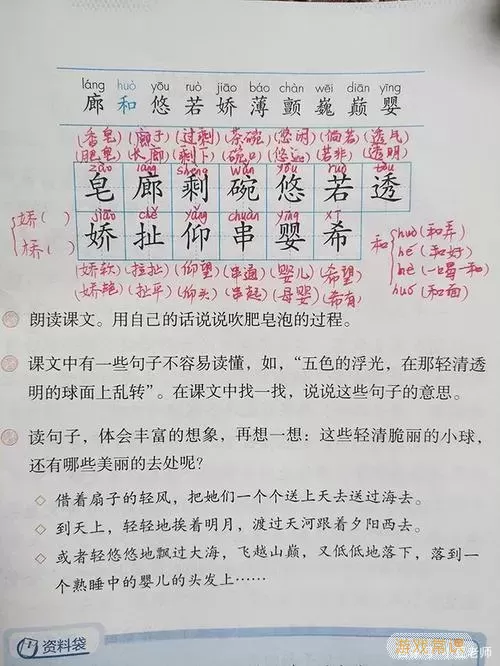 láng huò yōu ruò jiāo báo chàn wēi diān yīng
廊 和 悠 若 娇 薄 颤 巍 巅 婴
(香皂)(廊子)(过剩)(茶碗)(悠闲)(倘若)(透气)
(肥皂)(长廊)(剩下)(碗口)(悠远)(若非)(透明)
zào láng shèng wǎn yōu ruò tòu
皂 廊 剩 碗 悠 若 透
jiāo chě yǎng chuàn yīng xī
娇 扯 仰 串 婴 希
娇( )
桥( )
和
huò(和弄)
hé(和好)
hè(一唱一和)
huó(和面)
(娇软)(拉扯)(仰望)(串通)(婴儿)(希望)
(娇艳)(扯平)(仰头)(串起)(母婴)(希有)
朗读课文。用自己的话说说吹肥皂泡的过程。
课文中有一些句子不容易读懂，如，“五色的浮光，在那轻清透
明的球面上乱转”。在课文中找一找，说说这些句子的意思。
读句子，体会丰富的想象，再想一想：这些轻清脆丽的小球，
还有哪些美丽的去处呢？
◇ 借着扇子的轻风，把她们一个个送上天去送过海去。
◇ 到天上，轻轻地挨着明月，渡过天河跟着夕阳西去。
◇ 或者轻悠悠地飘过大海，飞越山巅，又低低地落下，落到一
个熟睡中的婴儿的头发上……
资料袋